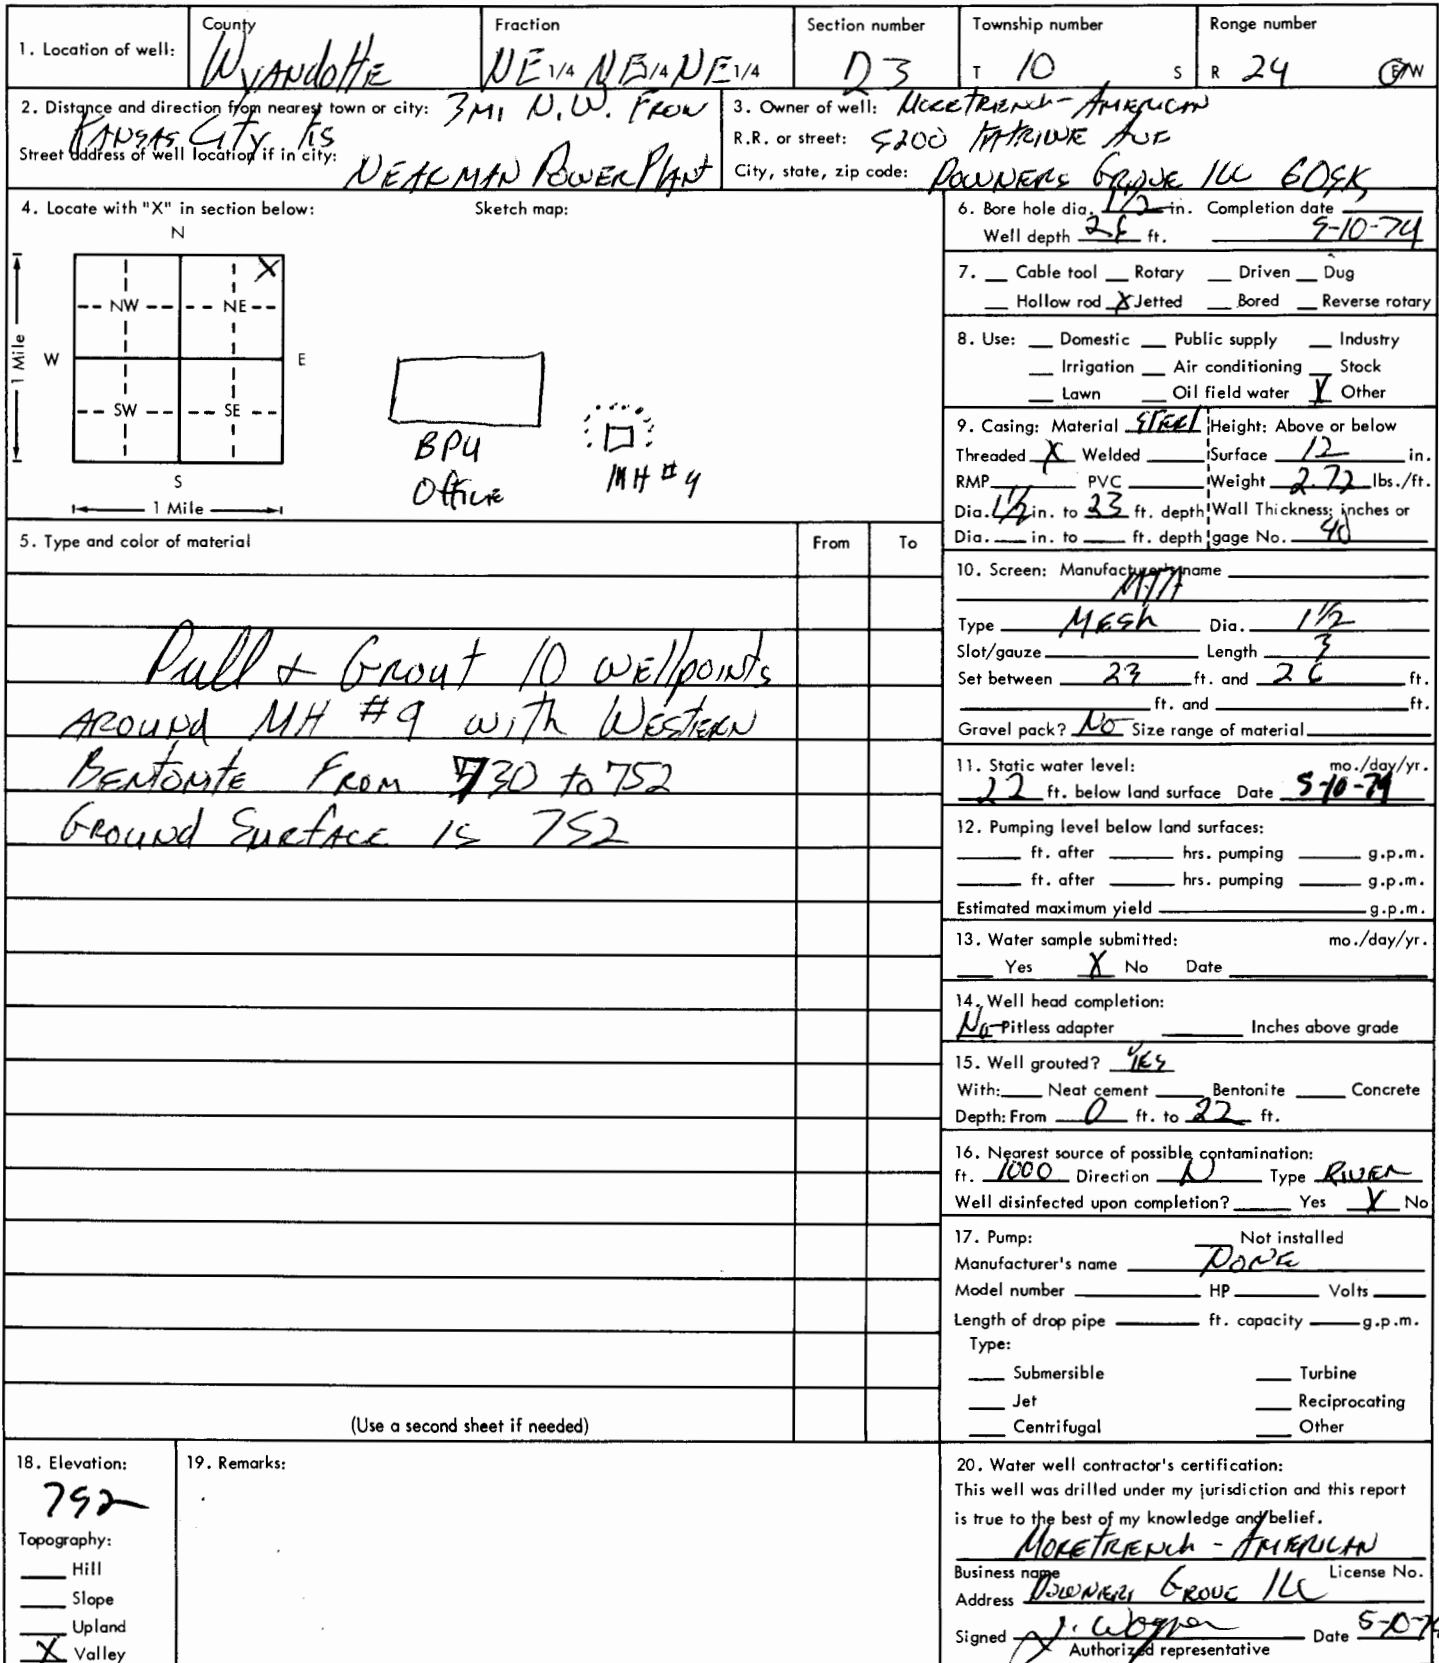 1. Location of well:
County
Wyandotte
Fraction
NE 1/4 NE 1/4 NE 1/4
Section number
Township number
T 10 S
Range number
R 24 E/W
2. Distance and direction from nearest town or city: 3 Mi N.W. From
Kansas City Ks
Street address of well location if in city:
NEAKMAN POWER PLANT
3. Owner of well: MORETRENCH-AMERICAN
R.R. or street: 5200 Ave
City, state, zip code: DOWNERS GROVE ILL
4. Locate with "X" in section below:
Sketch map:
N
NW NE
X
W E
1 Mile
SW SE
S
1 Mile
BPU
Office
MH #9
5. Type and color of material
From To
Pull + Grout 10 wellpoints
AROUND MH #9 with WESTERN
BENTONITE FROM 730 to 752
GROUND SURFACE IS 752
(Use a second sheet if needed)
6. Bore hole dia. 1 1/2 in. Completion date
Well depth 26 ft. 5-10-79
7. Cable tool Rotary Driven Dug
Hollow rod X Jetted Bored Reverse rotary
8. Use: Domestic Public supply Industry
Irrigation Air conditioning Stock
Lawn Oil field water X Other
9. Casing: Material STEEL Height: Above or below
Threaded X Welded Surface 12 in.
RMP PVC Weight 2.72 lbs./ft.
Dia. 1 1/2 in. to 23 ft. depth Wall Thickness: inches or
Dia. in. to ft. depth gage No. 40
10. Screen: Manufacturer's name
MTA
Type MESH Dia. 1 1/2
Slot/gauze Length 3
Set between 23 ft. and 26 ft.
ft. and ft.
Gravel pack? No Size range of material
11. Static water level: mo./day/yr.
22 ft. below land surface Date 5-10-79
12. Pumping level below land surfaces:
ft. after hrs. pumping g.p.m.
ft. after hrs. pumping g.p.m.
Estimated maximum yield g.p.m.
13. Water sample submitted: mo./day/yr.
Yes X No Date
14. Well head completion:
No Pitless adapter Inches above grade
15. Well grouted? YES
With: Neat cement Bentonite Concrete
Depth: From 0 ft. to 22 ft.
16. Nearest source of possible contamination:
ft. 1000 Direction N Type RIVER
Well disinfected upon completion? Yes X No
17. Pump: Not installed
Manufacturer's name NONE
Model number HP Volts
Length of drop pipe ft. capacity g.p.m.
Type:
Submersible Turbine
Jet Reciprocating
Centrifugal Other
18. Elevation:
752
Topography:
Hill
Slope
Upland
X Valley
19. Remarks:
20. Water well contractor's certification:
This well was drilled under my jurisdiction and this report
is true to the best of my knowledge and belief.
MORETRENCH - AMERICAN
Business name License No.
Address DOWNERS GROVE ILL
Signed J. Wagner Date 5-10-79
Authorized representative